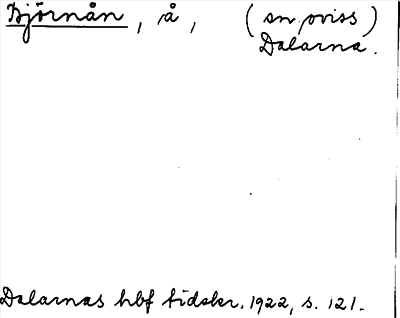 Björnån, å, (sn oviss)
Dalarna.
Dalarnas hbf tidskr. 1922, s. 121.